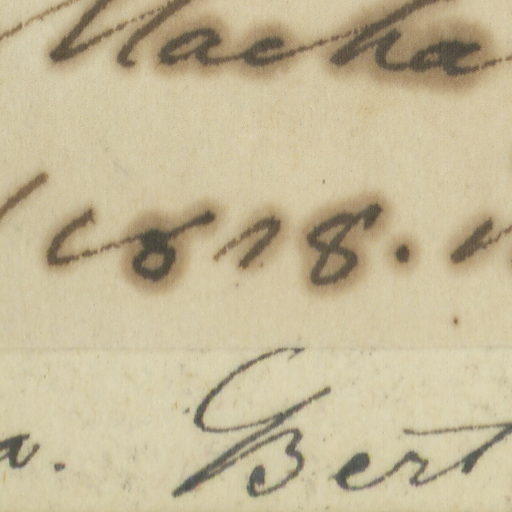 Macha
1818.
a. Bert